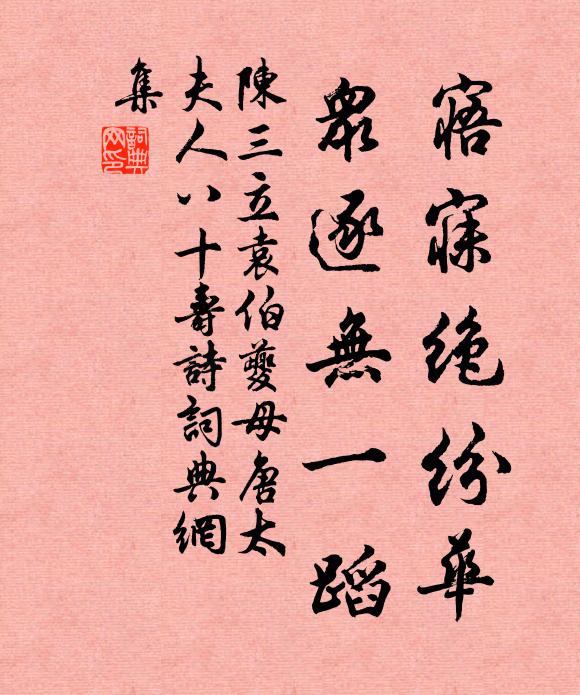 寤寐絶紛華
衆逐無一蹈
陳三立袁伯夔母唐太
夫人八十壽詩詞典網
集
詞典網印